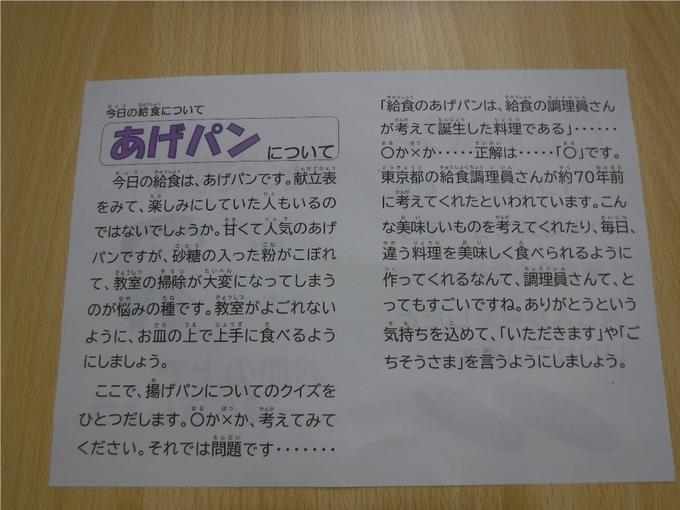 今日の給食について
あげパンについて
今日の給食は、あげパンです。献立表
をみて、楽しみにしていた人もいるの
ではないでしょうか。甘くて人気のあげ
パンですが、砂糖の入った粉がこぼれ
て、教室の掃除が大変になってしまう
のが悩みの種です。教室がよごれない
ように、お皿の上で上手に食べるよう
にしましょう。
ここで、揚げパンについてのクイズを
ひとつだします。〇か×か、考えてみて
ください。それでは問題です・・・・・・・
「給食のあげパンは、給食の調理員さん
が考えて誕生した料理である」・・・・・・
〇か×か・・・・・正解は・・・・・「〇」です。
東京都の給食調理員さんが約70年前
に考えてくれたといわれています。こん
な美味しいものを考えてくれたり、毎日、
違う料理を美味しく食べられるように
作ってくれるなんて、調理員さんて、と
ってもすごいですね。ありがとうという
気持ちを込めて、「いただきます」や「ご
ちそうさま」を言うようにしましょう。